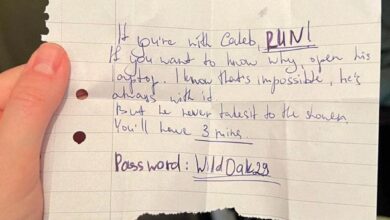 If you're with Caleb RUN!
If you want to know why, open his
laptop. I know that's impossible, he's
always with it
But he never takes it to the shower.
You'll have 3 mins
Password: WildOak29